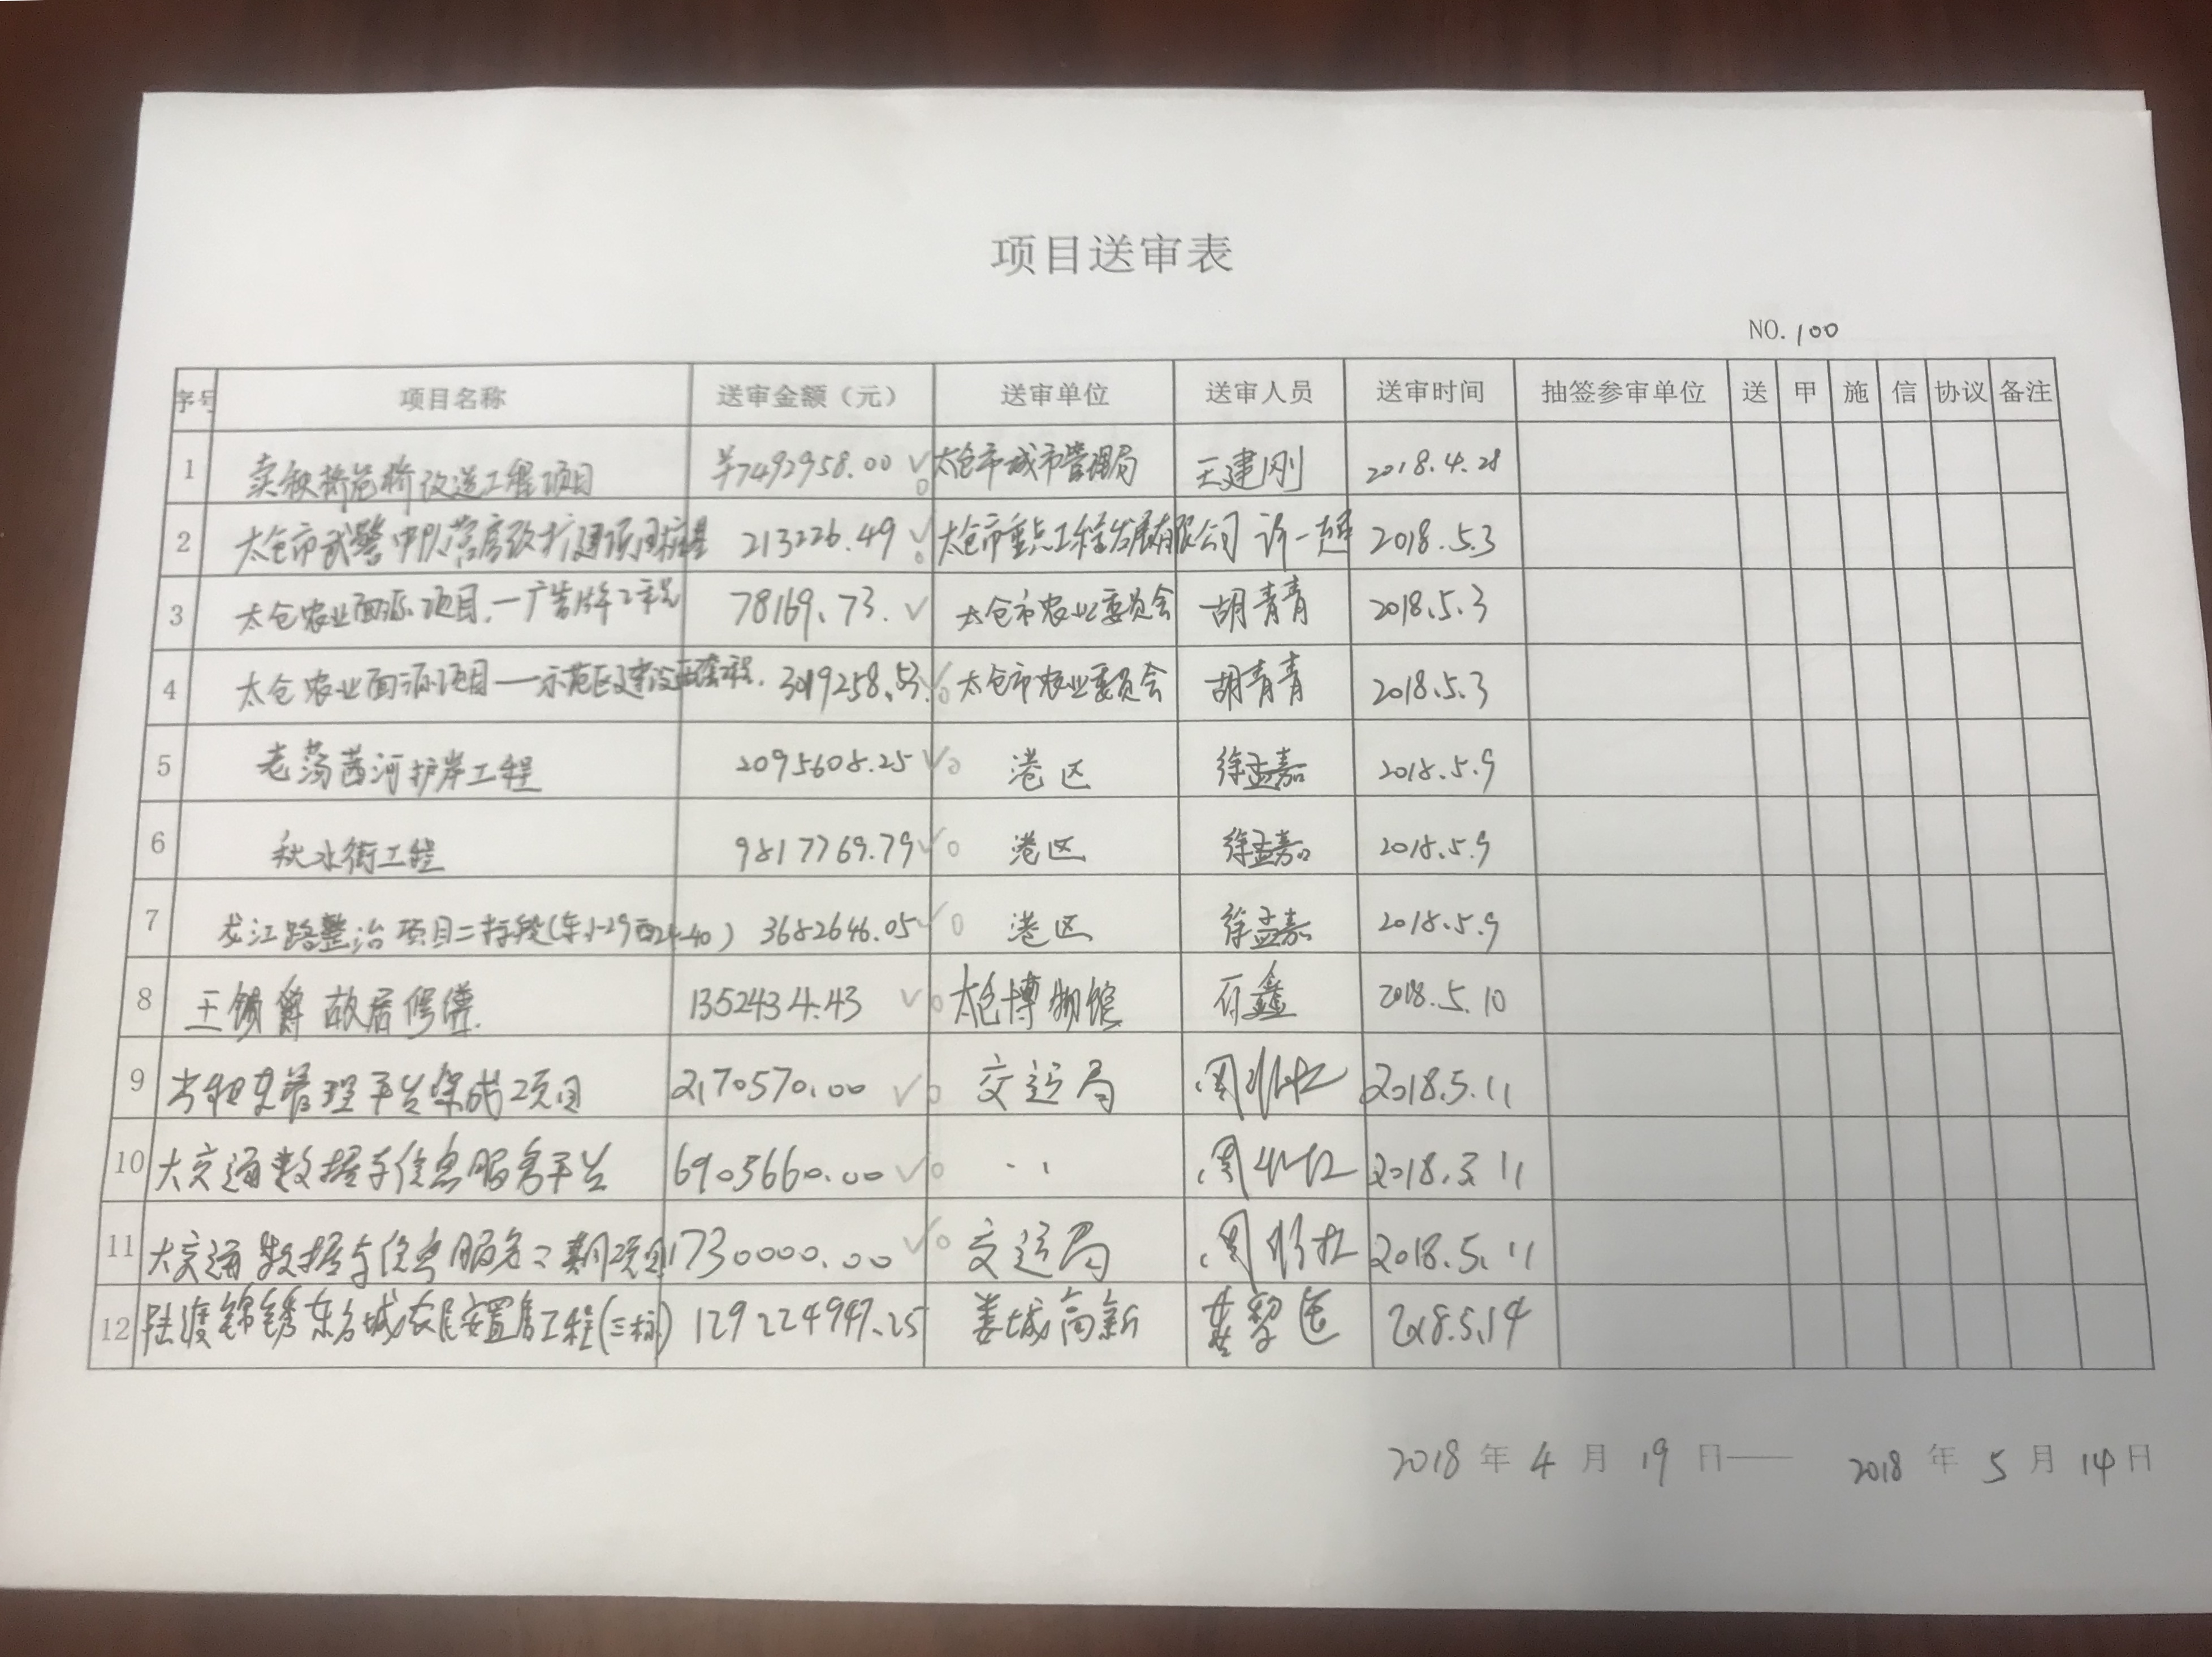 项目送审表
NO. 100
序号 项目名称 送审金额（元） 送审单位 送审人员 送审时间 抽签参审单位 送 甲 施 信 协议 备注
1 卖秧桥危桥改造工程项目 ¥7492958.00 太仓市城市管理局 王建刚 2018.4.28
2 太仓市武警中队营房改扩建项目 213226.49 太仓市重点工程发展有限公司 许一超 2018.5.3
3 太仓农业面源项目.一广告牌工程 78169.73. 太仓市农业委员会 胡青青 2018.5.3
4 太仓农业面源项目——示范区建设配套工程. 3019258.53. 太仓市农业委员会 胡青青 2018.5.3
5 老荡茜河护岸工程 2095608.25 港区 徐孟嘉 2018.5.9
6 秋水街工程 9817769.79 港区 徐孟嘉 2018.5.9
7 龙江路整治项目二标段(东1-29西24-40) 3682646.05 港区 徐孟嘉 2018.5.9
8 王锡爵故居修缮. 1352434.43 太仓博物馆 石鑫 2018.5.10
9 出租车管理平台集成项目 2170570.00 交运局 周 2018.5.11
10 大交通数据与信息服务平台 6905660.00 周 2018.5.11
11 大交通数据与信息服务二期项目 1730000.00 交运局 周 2018.5.11
12 陆渡锦绣东方城农民安置房工程(三标) 129224947.25 娄城高新 2018.5.14
2018 年 4 月 19 日—— 2018 年 5 月 14 日